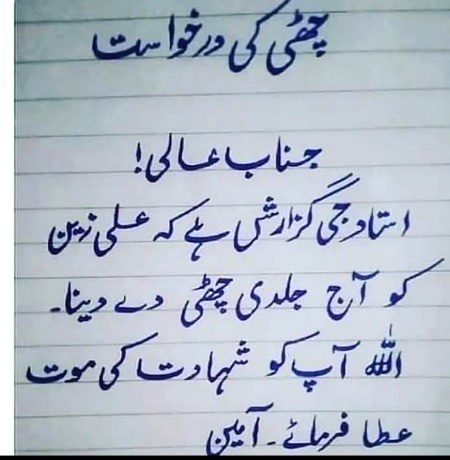 چھٹی کی درخواست
جناب عالی!
استاد جی گزارش ہے کہ علی زین
کو آج جلدی چھٹی دے دینا۔
اللہ آپ کو شہادت کی موت
عطا فرمائے۔ آمین